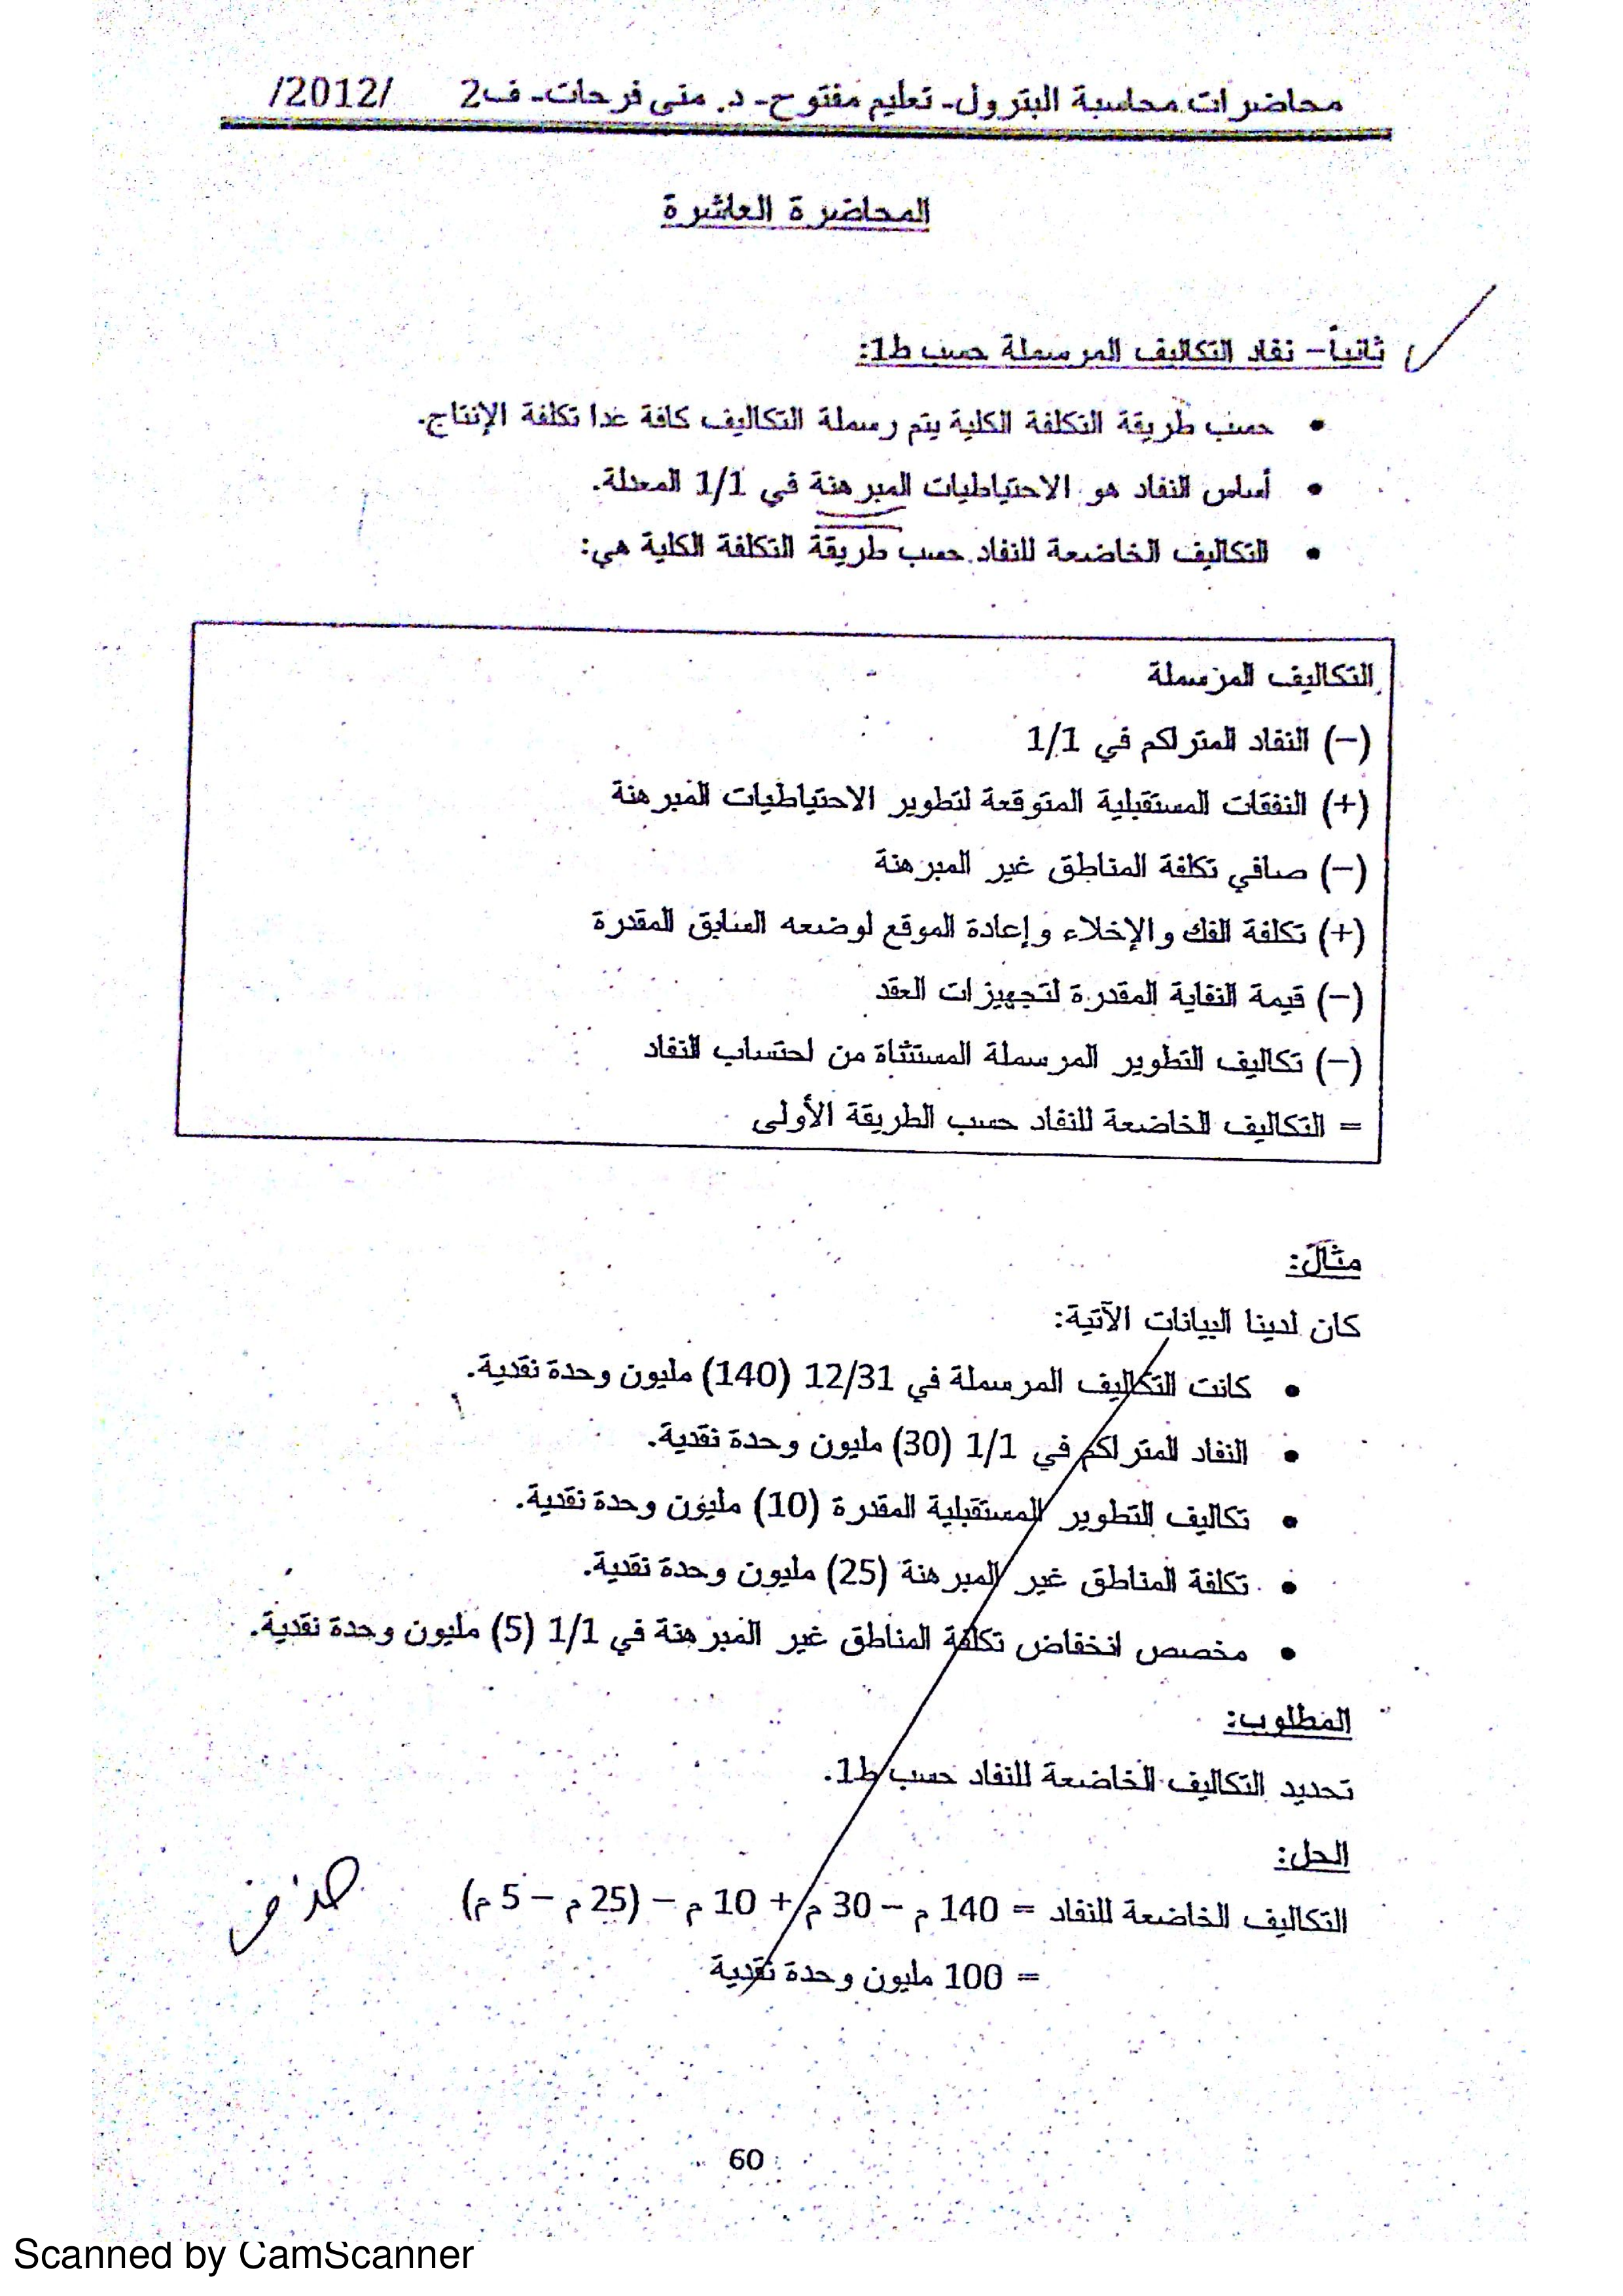 محاضرات محاسبة البترول- تعليم مفتوح- د. منى فرحات- ف2 /2012/
المحاضرة العاشرة
ثانياً- نفاد التكاليف المرسملة حسب ط1:
• حسب طريقة التكلفة الكلية يتم رسملة التكاليف كافة عدا تكلفة الإنتاج.
• أساس النفاد هو الاحتياطيات المبرهنة في 1/1 المعدلة.
• التكاليف الخاضعة للنفاد حسب طريقة التكلفة الكلية هي:
التكاليف المرسملة
(–) النفاد المتراكم في 1/1
(+) النفقات المستقبلية المتوقعة لتطوير الاحتياطيات المبرهنة
(–) صافي تكلفة المناطق غير المبرهنة
(+) تكلفة الفك والإخلاء وإعادة الموقع لوضعه السابق المقدرة
(–) قيمة النفاية المقدرة لتجهيزات العقد
(–) تكاليف التطوير المرسملة المستثناة من احتساب النفاد
= التكاليف الخاضعة للنفاد حسب الطريقة الأولى
مثال:
كان لدينا البيانات الآتية:
• كانت التكاليف المرسملة في 12/31 (140) مليون وحدة نقدية.
• النفاد المتراكم في 1/1 (30) مليون وحدة نقدية.
• تكاليف التطوير المستقبلية المقدرة (10) مليون وحدة نقدية.
• تكلفة المناطق غير المبرهنة (25) مليون وحدة نقدية.
• مخصص انخفاض تكلفة المناطق غير المبرهنة في 1/1 (5) مليون وحدة نقدية.
المطلوب:
تحديد التكاليف الخاضعة للنفاد حسب ط1.
الحل:
التكاليف الخاضعة للنفاد = 140 م – 30 م + 10 م – (25 م – 5 م)
حذف
= 100 مليون وحدة نقدية
60
Scanned by CamScanner